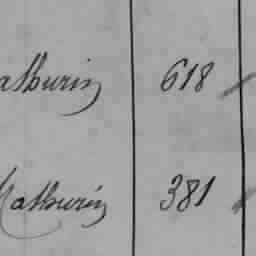 athurin 618
Mathurin 381